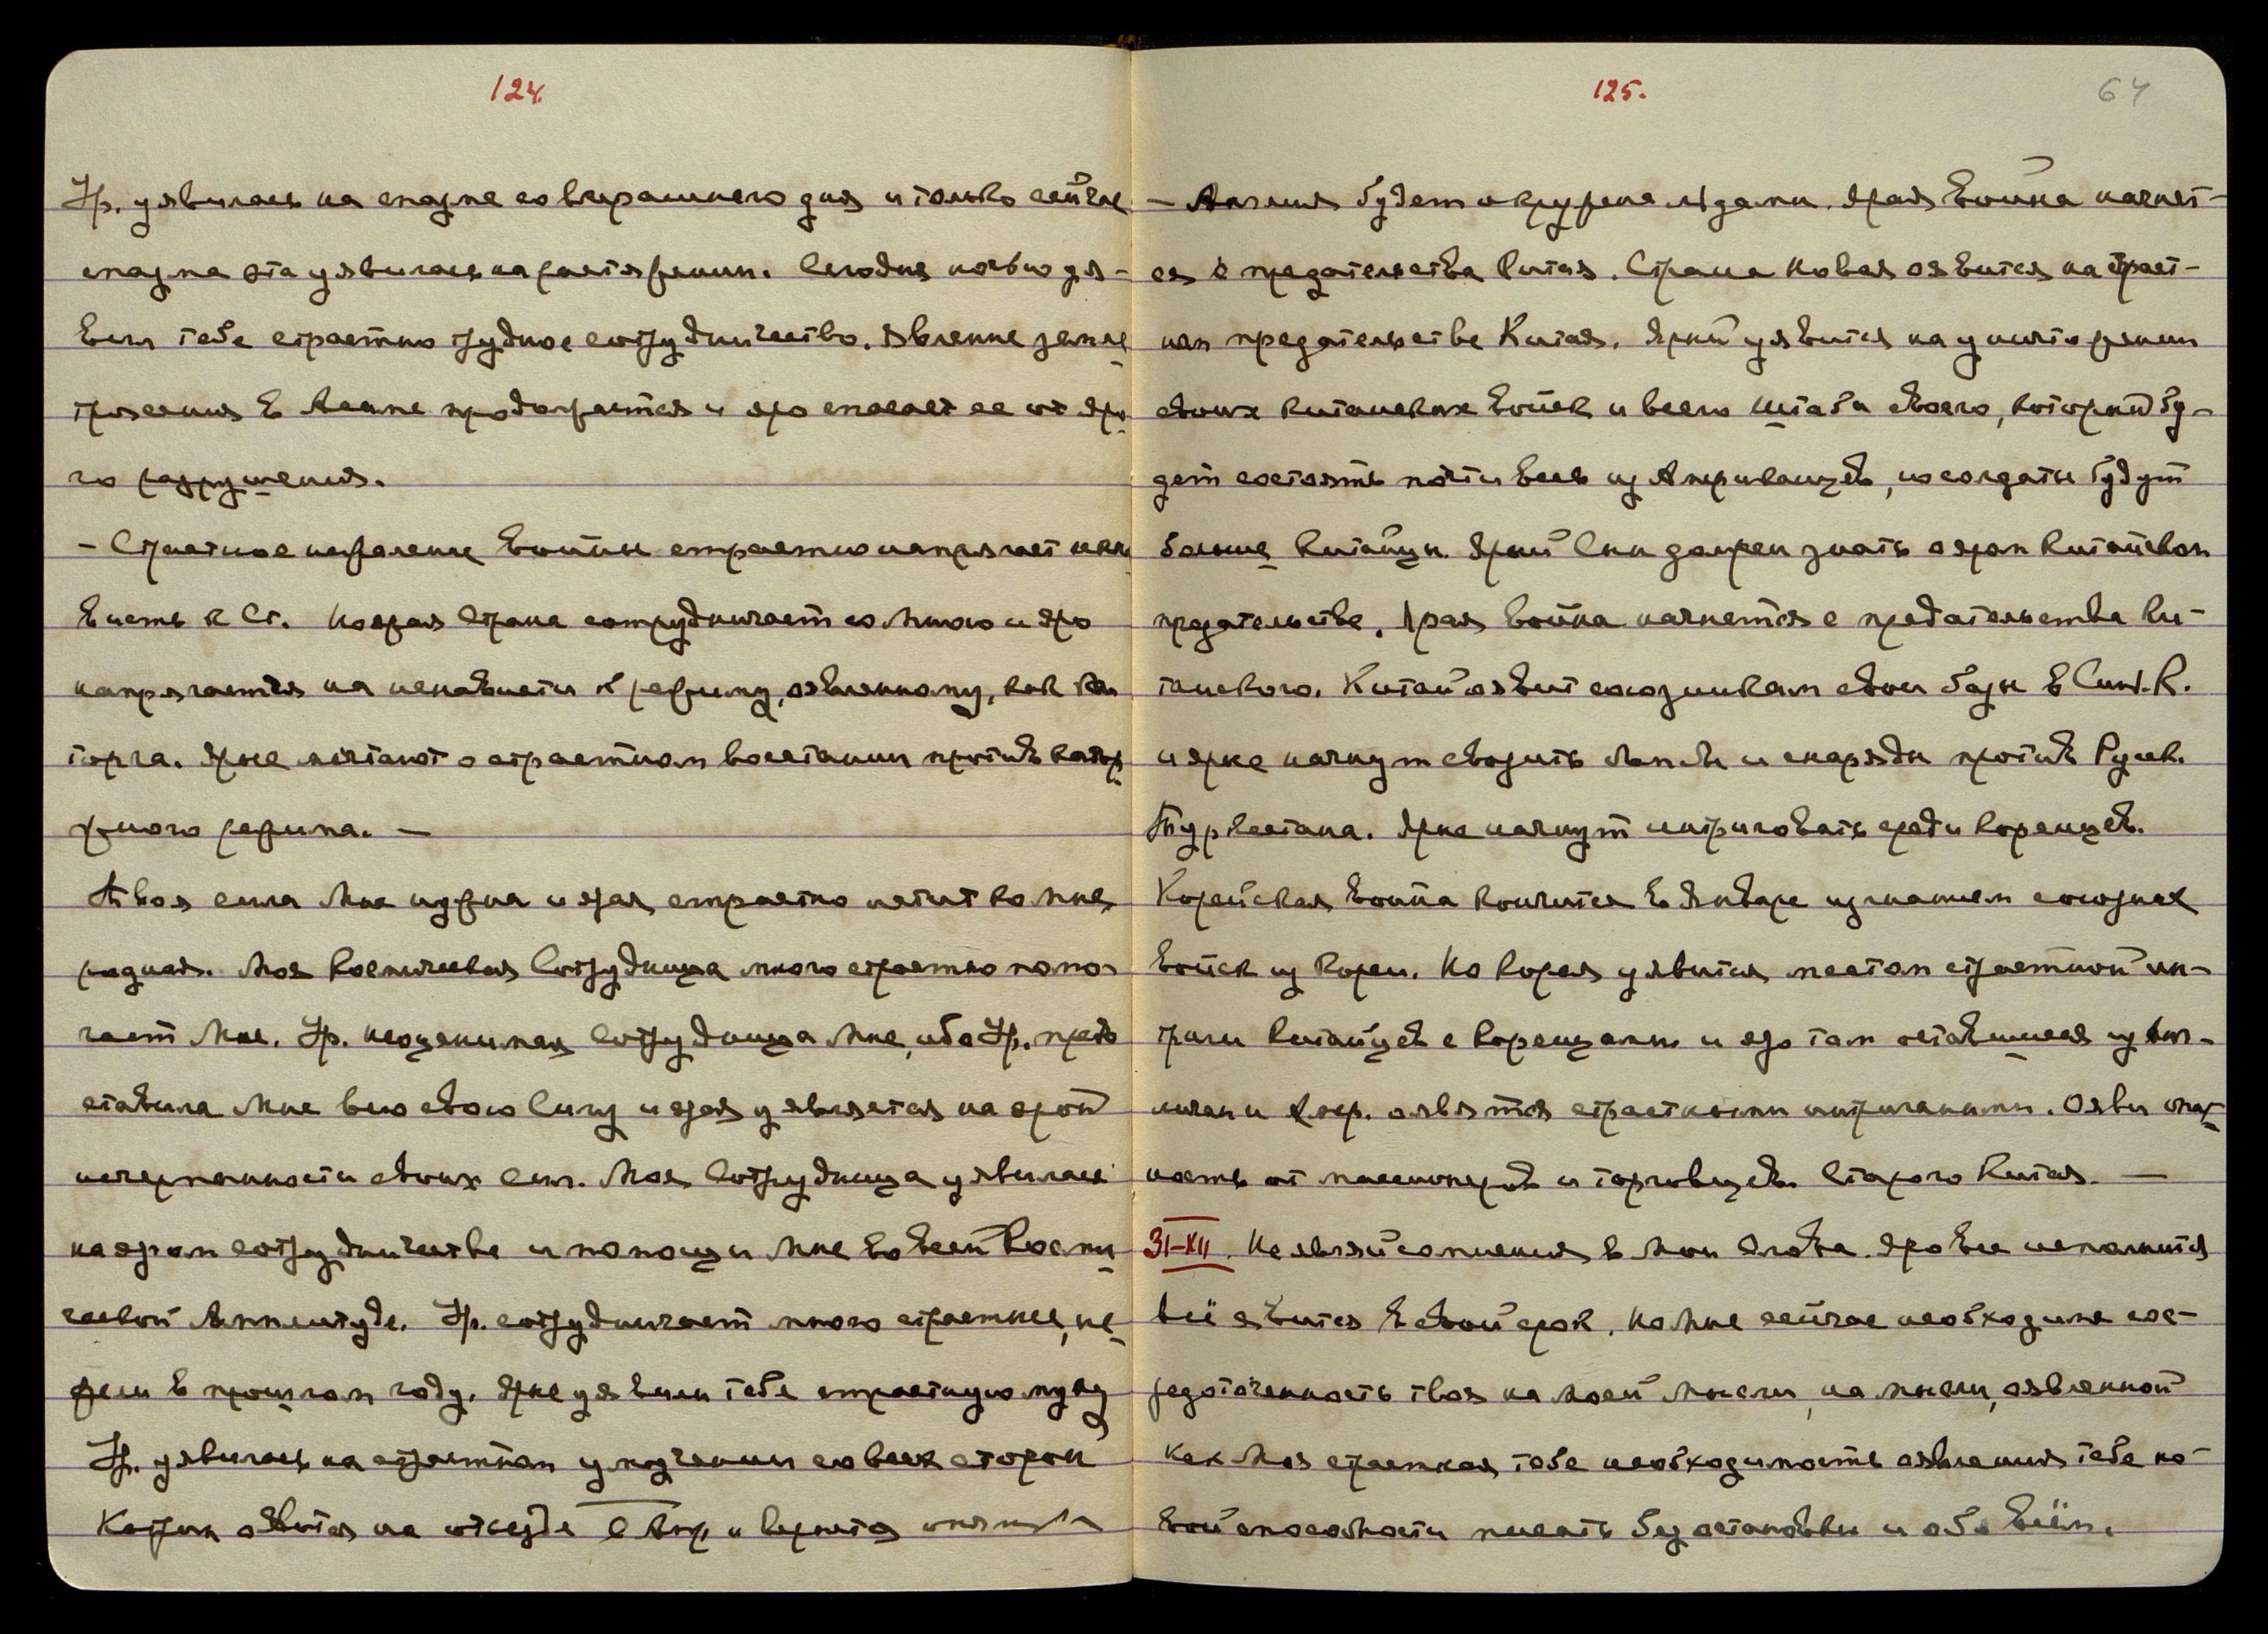 124.
Ур. уявилась на спазме со вчерашнего дня и только сейчас
спазма эта уявилась на растяжении. Сегодня ночью уя-
вил тебе страстно трудное сотрудничество. Явление земле
трясения в Ассаме продолжается и яро спасает ее от яро
го разрушения.
- Страстное нежелание войны страстно напрягает нена
висть к Ст. Но ярая Страна сотрудничает со Мною и яро
напрягается на ненависти к режиму, явленному, как ка
торга. Ярые мечтают о страстном восстании против катор
жного режима. —
Твоя сила Мне нужна и ярая, страстно летит ко Мне,
радная. Моя Космическая Сотрудница много страстно помо-
гает Мне. Ур. неоценимая Сотрудница Мне, ибо Ур. пред
ставила Мне всю свою Силу и ярая уявляется на ярой
исчерпанности своих сил. Моя Сотрудница уявилась
на яром сотрудничестве и помощи Мне во всей Косми
ческой Амплитуде. Ур. сотрудничает много страстнее, не
жели в прошлом году. Ярые уявили тебе страстную муку
Ур. уявилась на страстном умучении со всех сторон
Катрин явится на отъезде в Амер. и вернется опять
125.
64
- Англия будет окружена льдами. Ярая война начнет-
ся с предательства Китая. Страна Новая оявится на страст-
ном предательстве Китая. Ярый уявится на уничтожении
своих китайских войск и всего штаба своего, который бу-
дет состоять почти весь из Американцев, но солдаты будут
больше Китайцы. Ярый должен знать о яром Китайском
предательстве. Ярая война начнется с предательства Ки-
тайского. Китай оявит союзникам свои базы в
и ярые начнут свозить и снаряды против Русск.
Туркестана. Ярые начнут интриговать среди Корейцев.
Корейская война кончится в Январе изгнанием союзных
войск из Кореи. Но Корея уявится местом страстной ин-
триги Китайцев с Корейцами и яро там оставшиеся из Анг-
личан и Амер. оявятся страстными интриганами. Ояви опас
ность от миссионеров и торговцев Старого Китая. —
31-XII. Не являй сомнения в Мои Слова. Яро все исполнится
всё явится в свой срок. Но Мне сейчас необходима сос-
редоточенность твоя на Моей Мысли, на мысли, оявленной
как Моя страстная тебе необходимость оявления тебе но-
вой способности писать без остановки и обо всём.